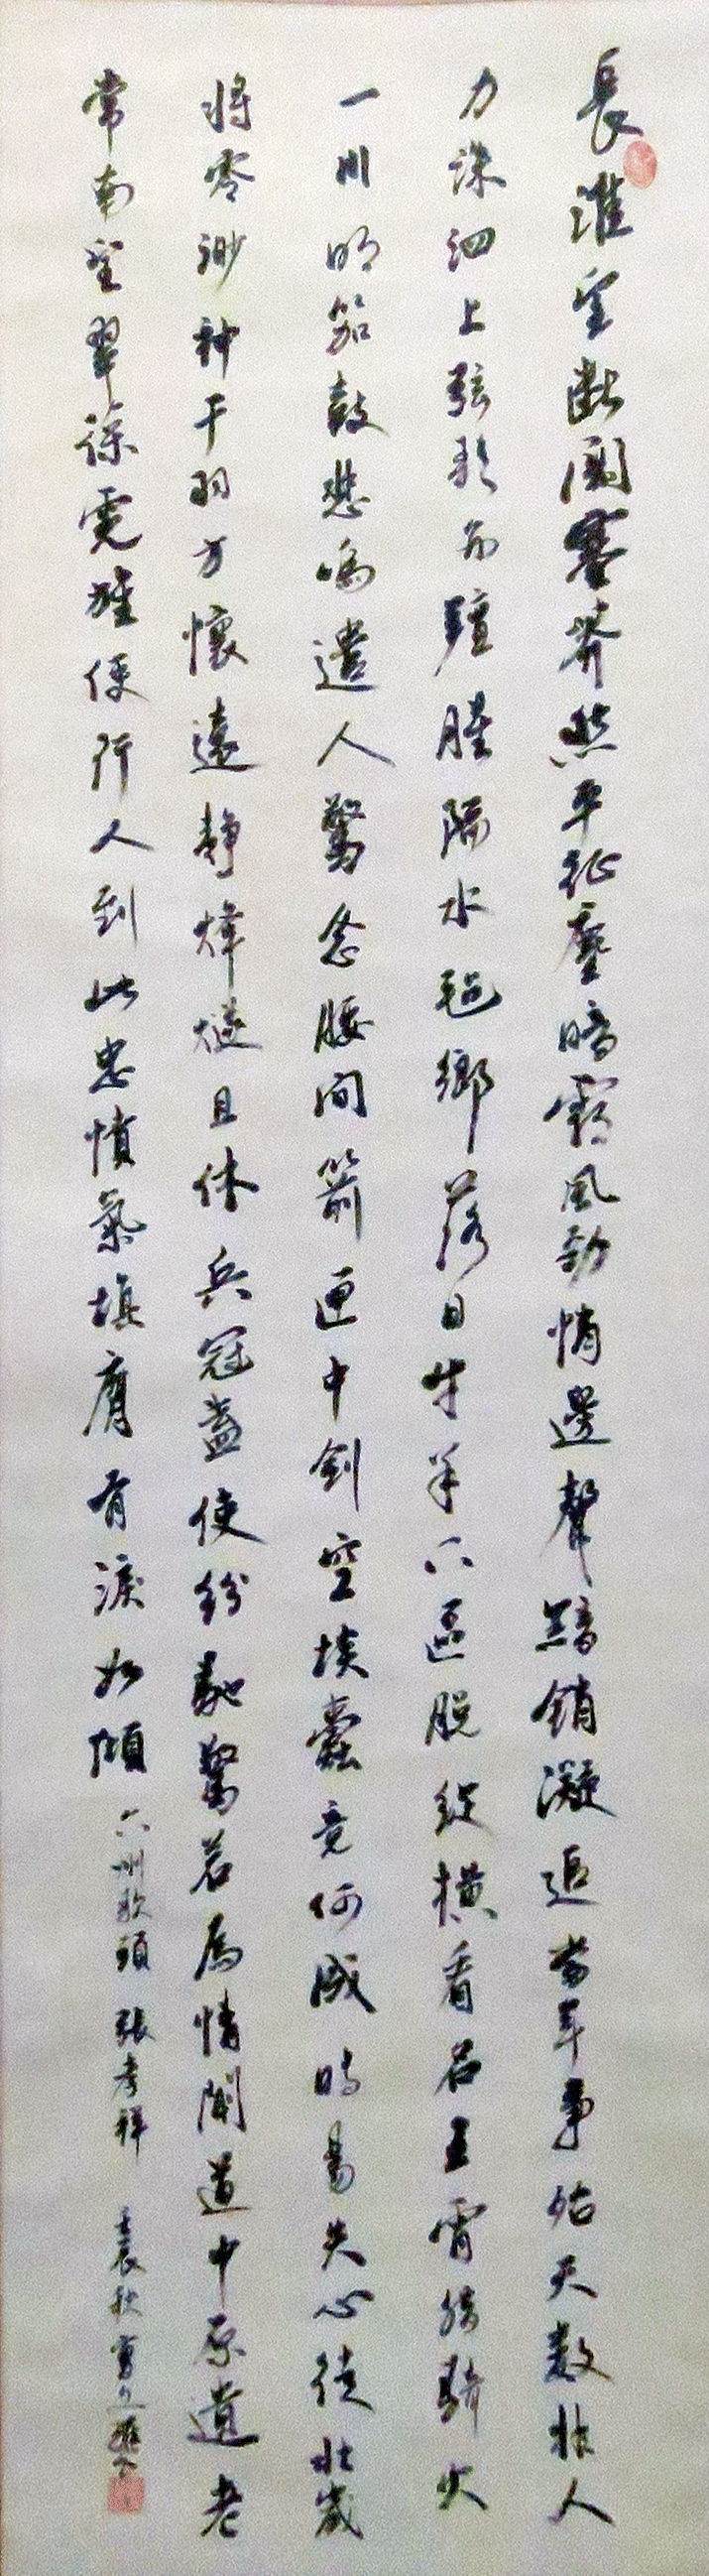 長淮望斷關塞莽然平征塵暗霜風勁悄邊聲黯銷凝追當年事殆天數非人
力洙泗上弦歌而羶腥隔水氈鄉落日牛羊下區脫縱橫看名王宵獵騎火
一川明笳鼓悲鳴遣人驚念腰間箭匣中劍空埃蠹竟何成時易失心徒壯歲
將零渺神干羽方懷遠靜烽燧且休兵冠蓋使紛馳騖若為情聞道中原遺老
常南望翠葆霓旌使行人到此忠憤氣填膺有淚如傾 六州歌頭 張孝祥